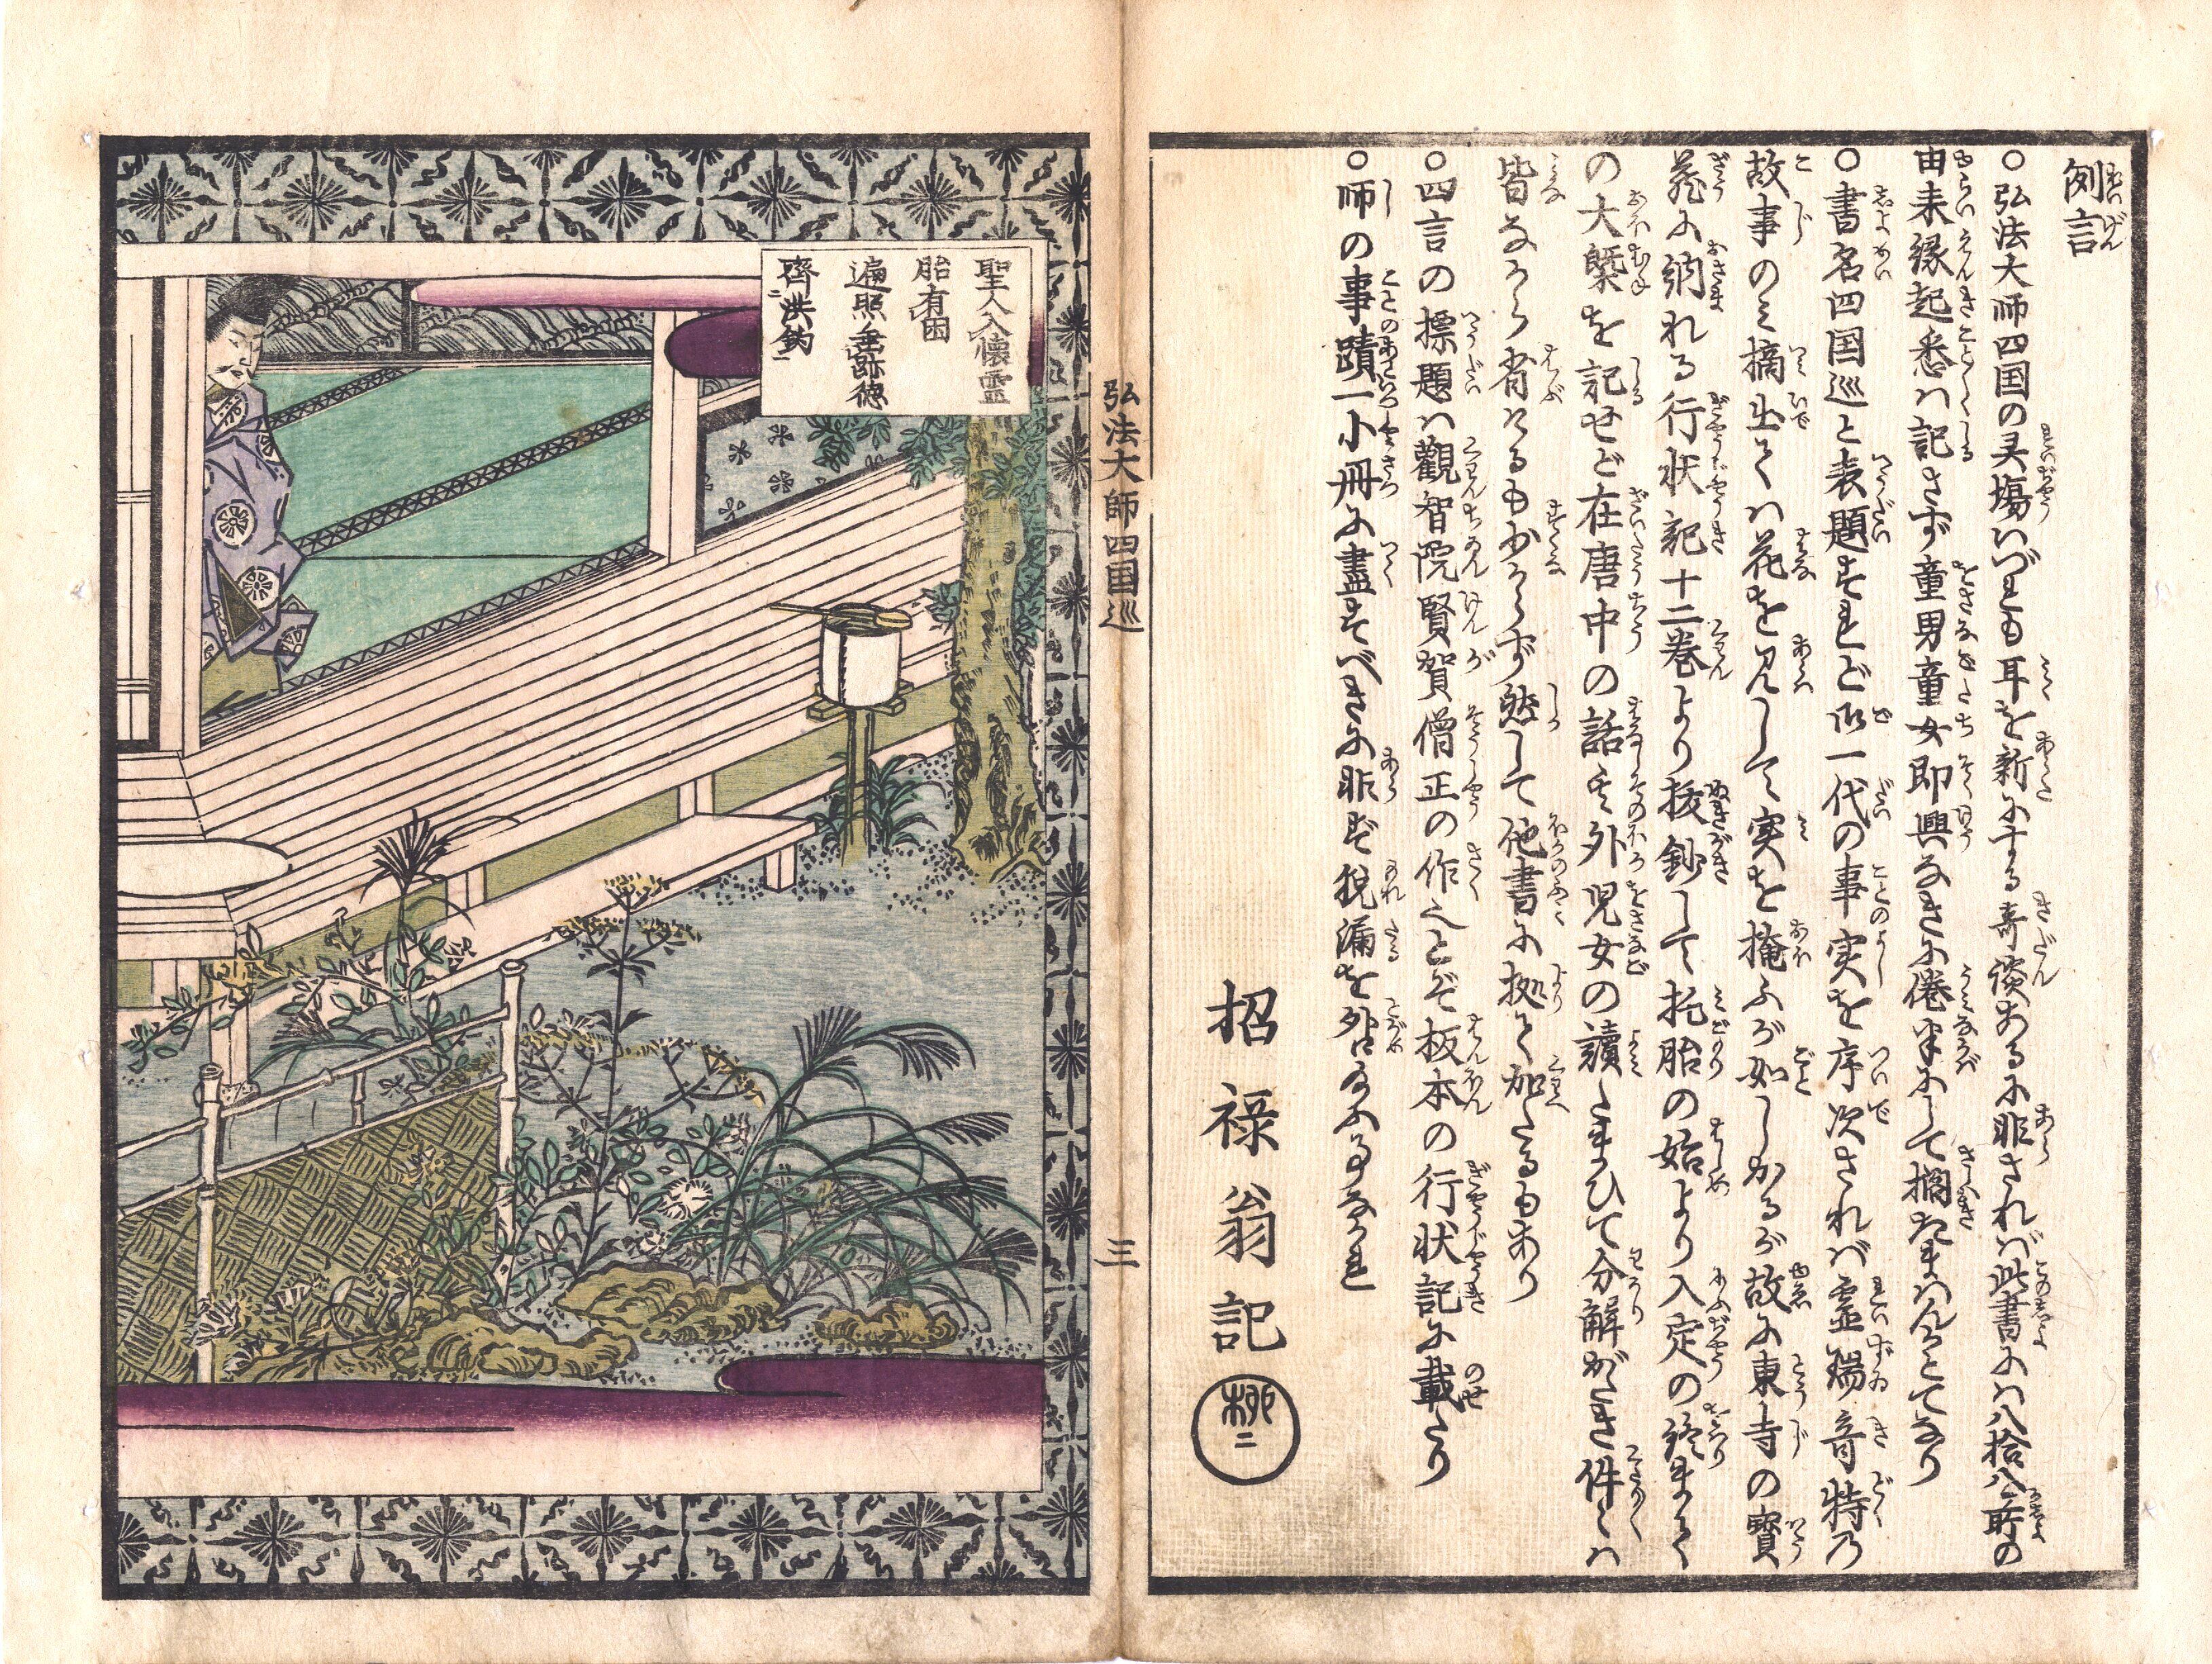 例言
○弘法大師四国の㚑場いづれも耳を新にする奇談あるに非されば此書には八拾八ケ所の
由来縁起悉は記さず童男童女即興なきに倦
○書名四国巡と表題すれど師一代の事実を序次されば霊瑞奇特乃
故事のミ摘出ては花を見して実を掩ふが如しかるが故に東寺の寳
蔵に納れる行状記十二巻より抜鈔して托胎の始より入定の終まて
の大槩を記せど在唐中の話其外児女の讀たまひて分解がたき件々は
皆ながら省けるも少からず然して他書に拠て加たるもあり
○四言の標題は觀智院賢賀僧正の作也とぞ板本の行状記に載たり
○師の事蹟一小冊に盡すべきに非ず脱漏を咎給ふ事なかれ
招禄翁記
弘法大師四国巡
三
聖人入懐霊
胎有因
遍照垂跡徳
齊洪鈞